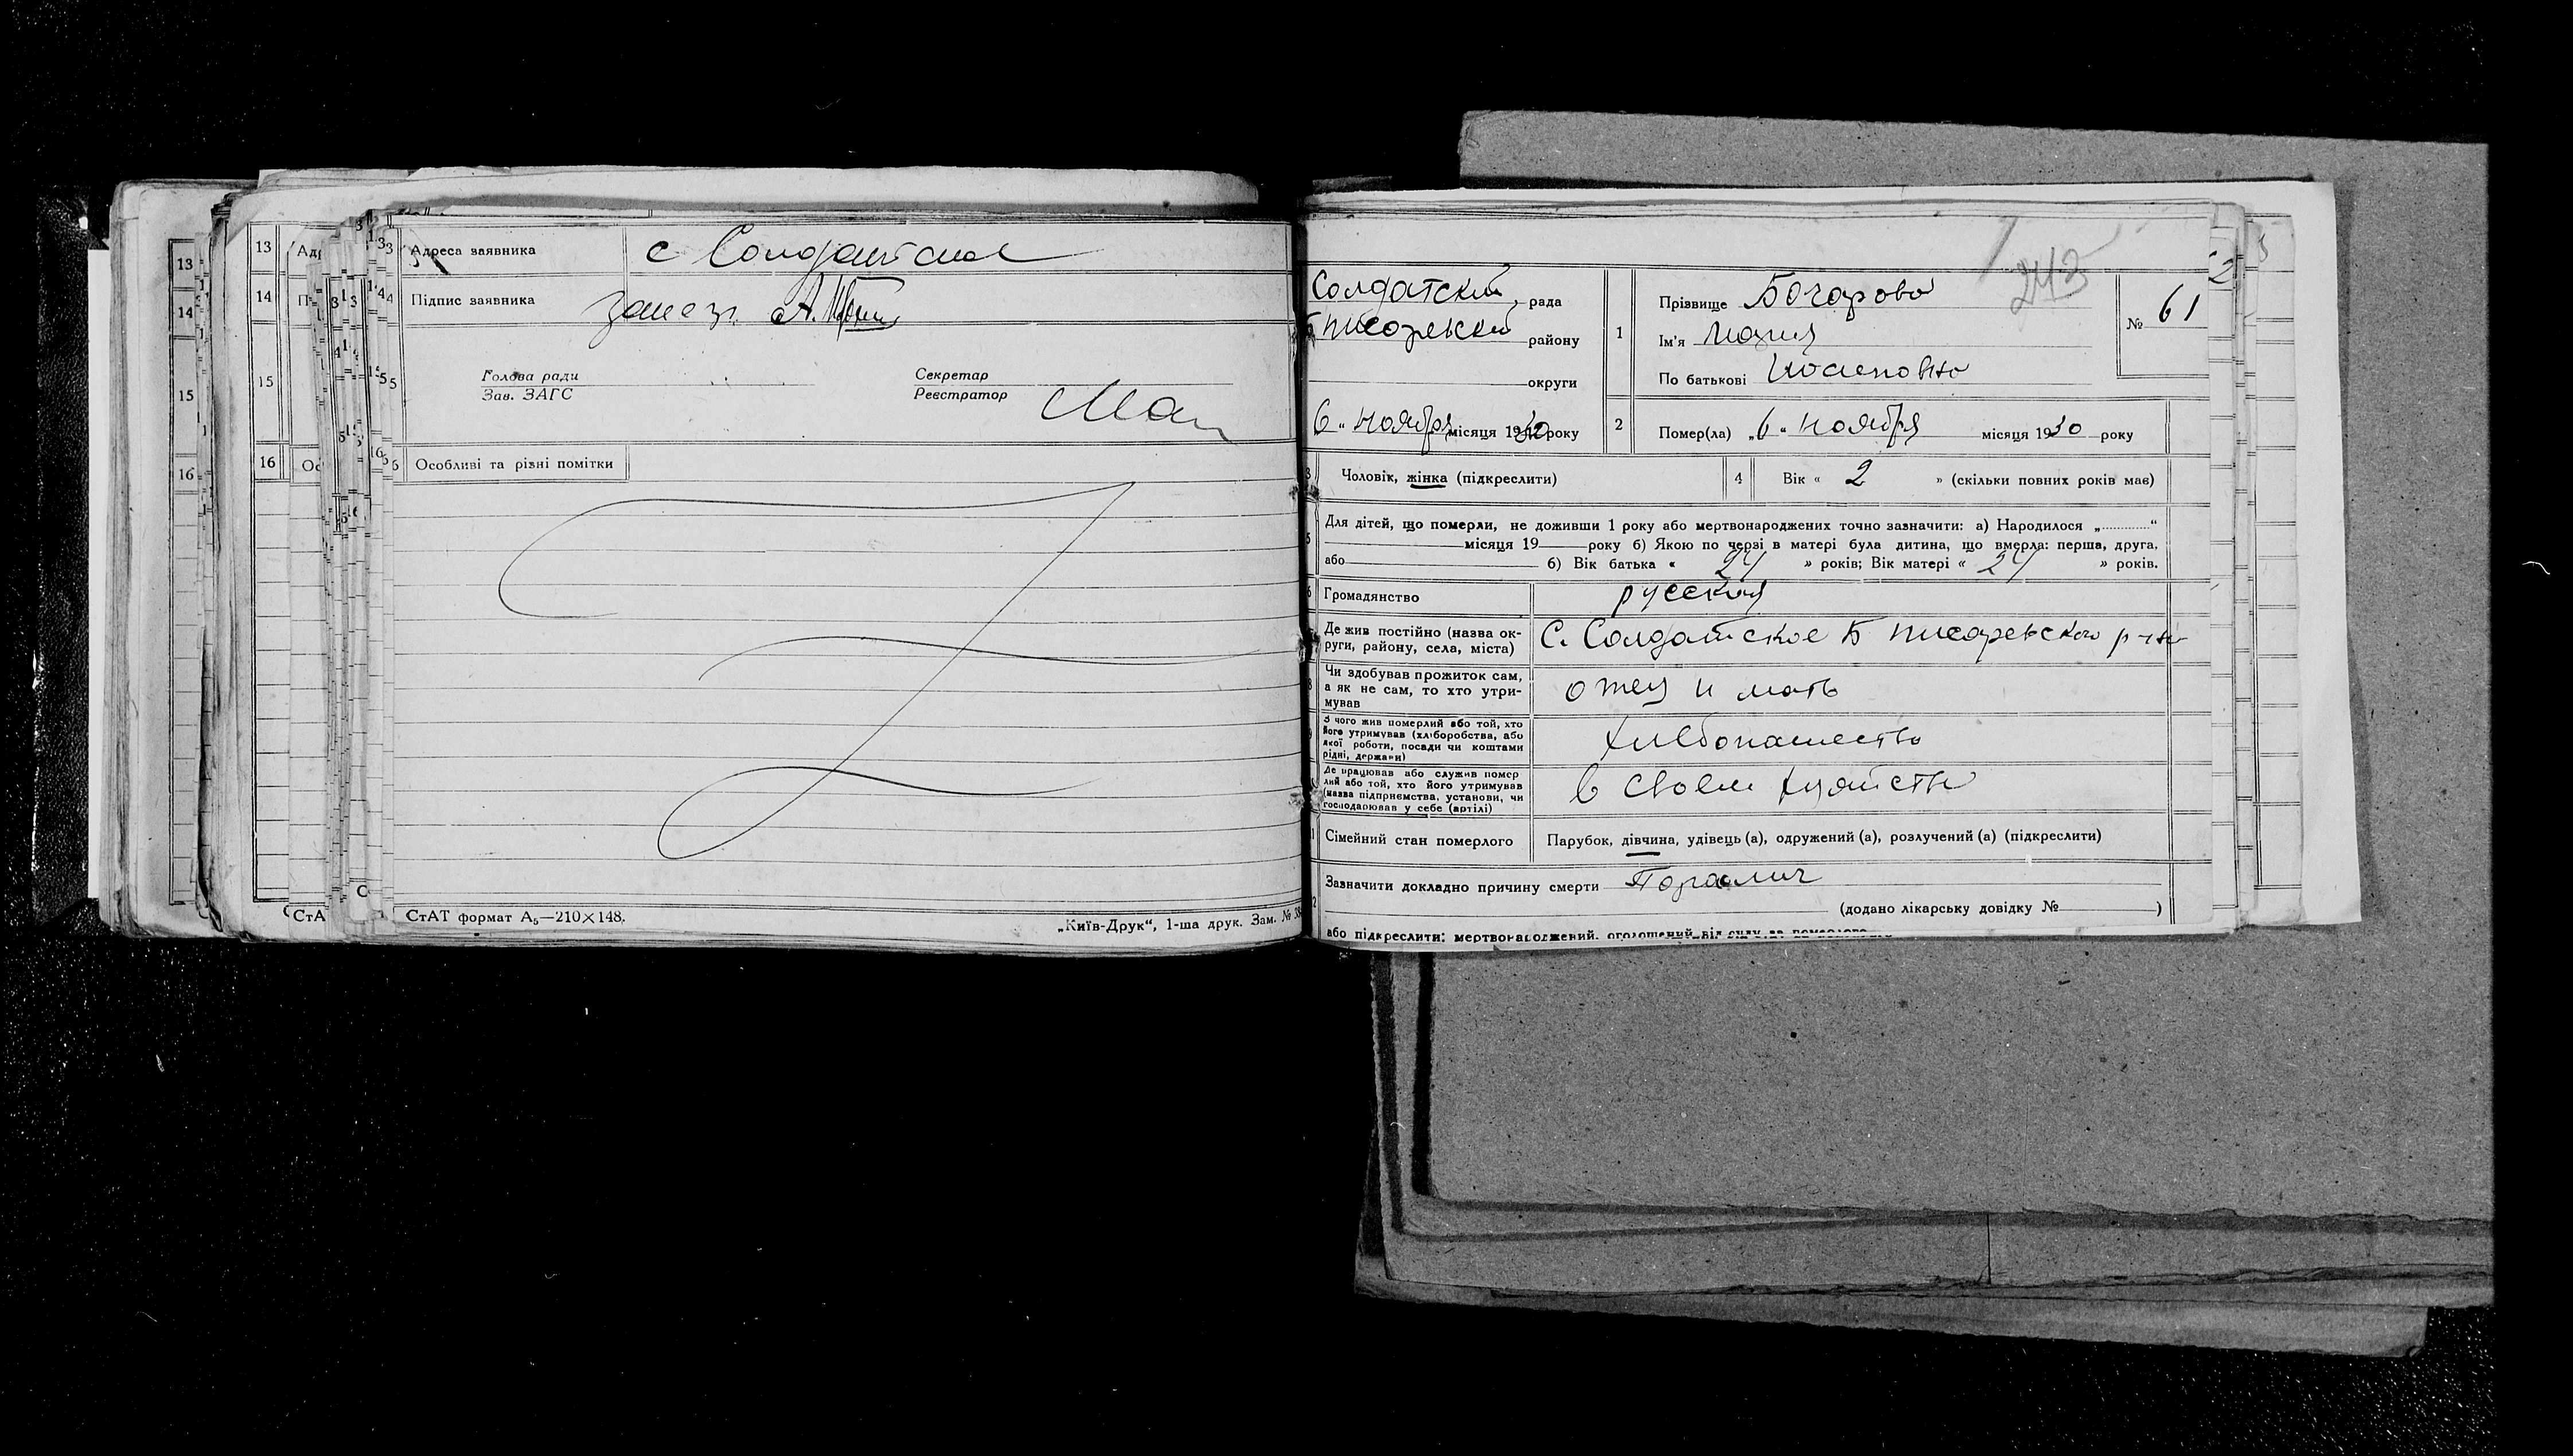 13 Адреса заявника с Солдатское
14 Підпис заявника
15 Голова ради Секретар
Зав. ЗАГС Реєстратор
16 Особливі та різні помітки
СтАТ формат А5—210×148.
„Київ-Друк“, 1-ша друк. Зам. №
243
Солдатский рада
Б Писаревский району
округи
6 „ ноября місяця 1930 року
1 Прізвище Бочарова
Ім'я Мария
По батькові Иосиповна
№ 61
2 Помер(ла) „6“ ноября місяця 1930 року
3 Чоловік, жінка (підкреслити)
4 Вік « 2 » (скільки повних років має)
5 Для дітей, що померли, не доживши 1 року або мертвонароджених точно зазначити: а) Народилося „............“
місяця 19 року б) Якою по черзі в матері була дитина, що вмерла: перша, друга,
або б) Вік батька « 24 » років; Вік матері « 24 » років.
6 Громадянство русская
Де жив постійно (назва ок-
руги, району, села, міста) С. Солдатское Б Писаревского р-на
Чи здобував прожиток сам,
а як не сам, то хто утри-
мував отец и мать
З чого жив померлий або той, хто
його утримував (хліборобства, або
якої роботи, посади чи коштами
рідні, держави) хлебопашество
Де працював або служив помер
лий або той, хто його утримував
(назва підприємства, установи, чи
господарював у себе (артілі) в своем хозяйстве
Сімейний стан померлого Парубок, дівчина, удівець (а), одружений (а), розлучений (а) (підкреслити)
Зазначити докладно причину смерти Паралич
(додано лікарську довідку № )
або підкреслити: мертвонароджений, оголошений від суду за померлого